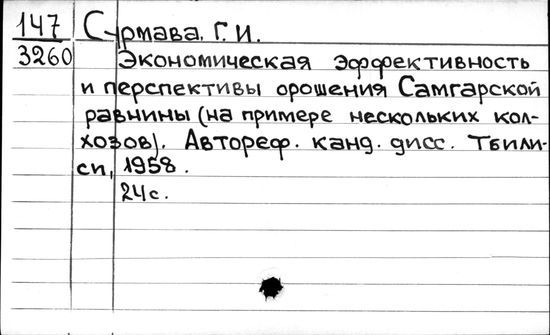 147 Сурмава, Г.И.
3260 Экономическая эффективность
и перспективы орошения Самгарской
равнины (на примере нескольких кол-
хозов). Автореф. канд. дисс. Тбили-
си, 1958.
24с.